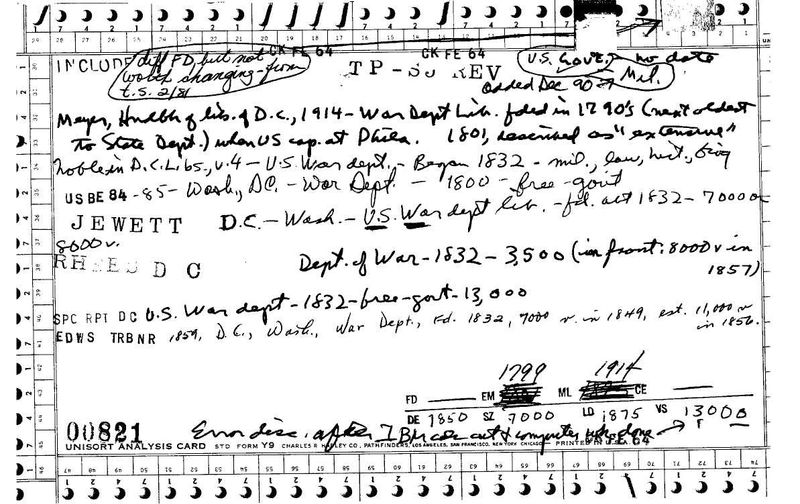 CK FE 64 CK FE 64
INCLUDE diff FD, but not worth changing - from t.s. 2/81
TP-SJ REV
U.S. Govt. - Mil. no date
added Dec 90
Meyer, Hndbk of libs. of D.C., 1914 - War Dept Lib. fded in 1790's (next oldest
to State Dept.) when US cap. at Phila. 1801, described as "extensive"
Noble in D.C. Libs., v.4 - U.S. War dept. - Began 1832 - mil., law, hist., biog
US BE 84 -85 - Wash., DC. - War Dept. - 1800 - free - govt
JEWETT D.C. - Wash. - U.S. War dept lib. - fd. act 1832 - 7000 v
8000 v.
RHEES D C Dept. of War - 1832 - 3,500 (in front: 8000 v in
1857)
SPC RPT DC U.S. War dept - 1832 - free - govt - 13,000
EDWS TRBNR 1859, D.C., Wash., War Dept., Fd. 1832, 7000 v. in 1849, est. 11,000 v
in 1856.
1799 1914
FD EM ML CE
DE 1850 SZ 7000 LD 1875 VS 13000
00821 Error disc. after IBM card cut & computer wk done CK FE 64
UNISORT ANALYSIS CARD STD FORM Y9 CHARLES R. HADLEY CO., PATHFINDERS, LOS ANGELES, SAN FRANCISCO, NEW YORK, CHICAGO PRINTED IN U.S.A.